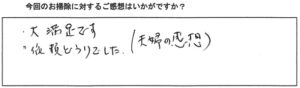 今回のお掃除に対するご感想はいかがですか?
・大満足です
・依頼どうりでした。(夫婦の感想)